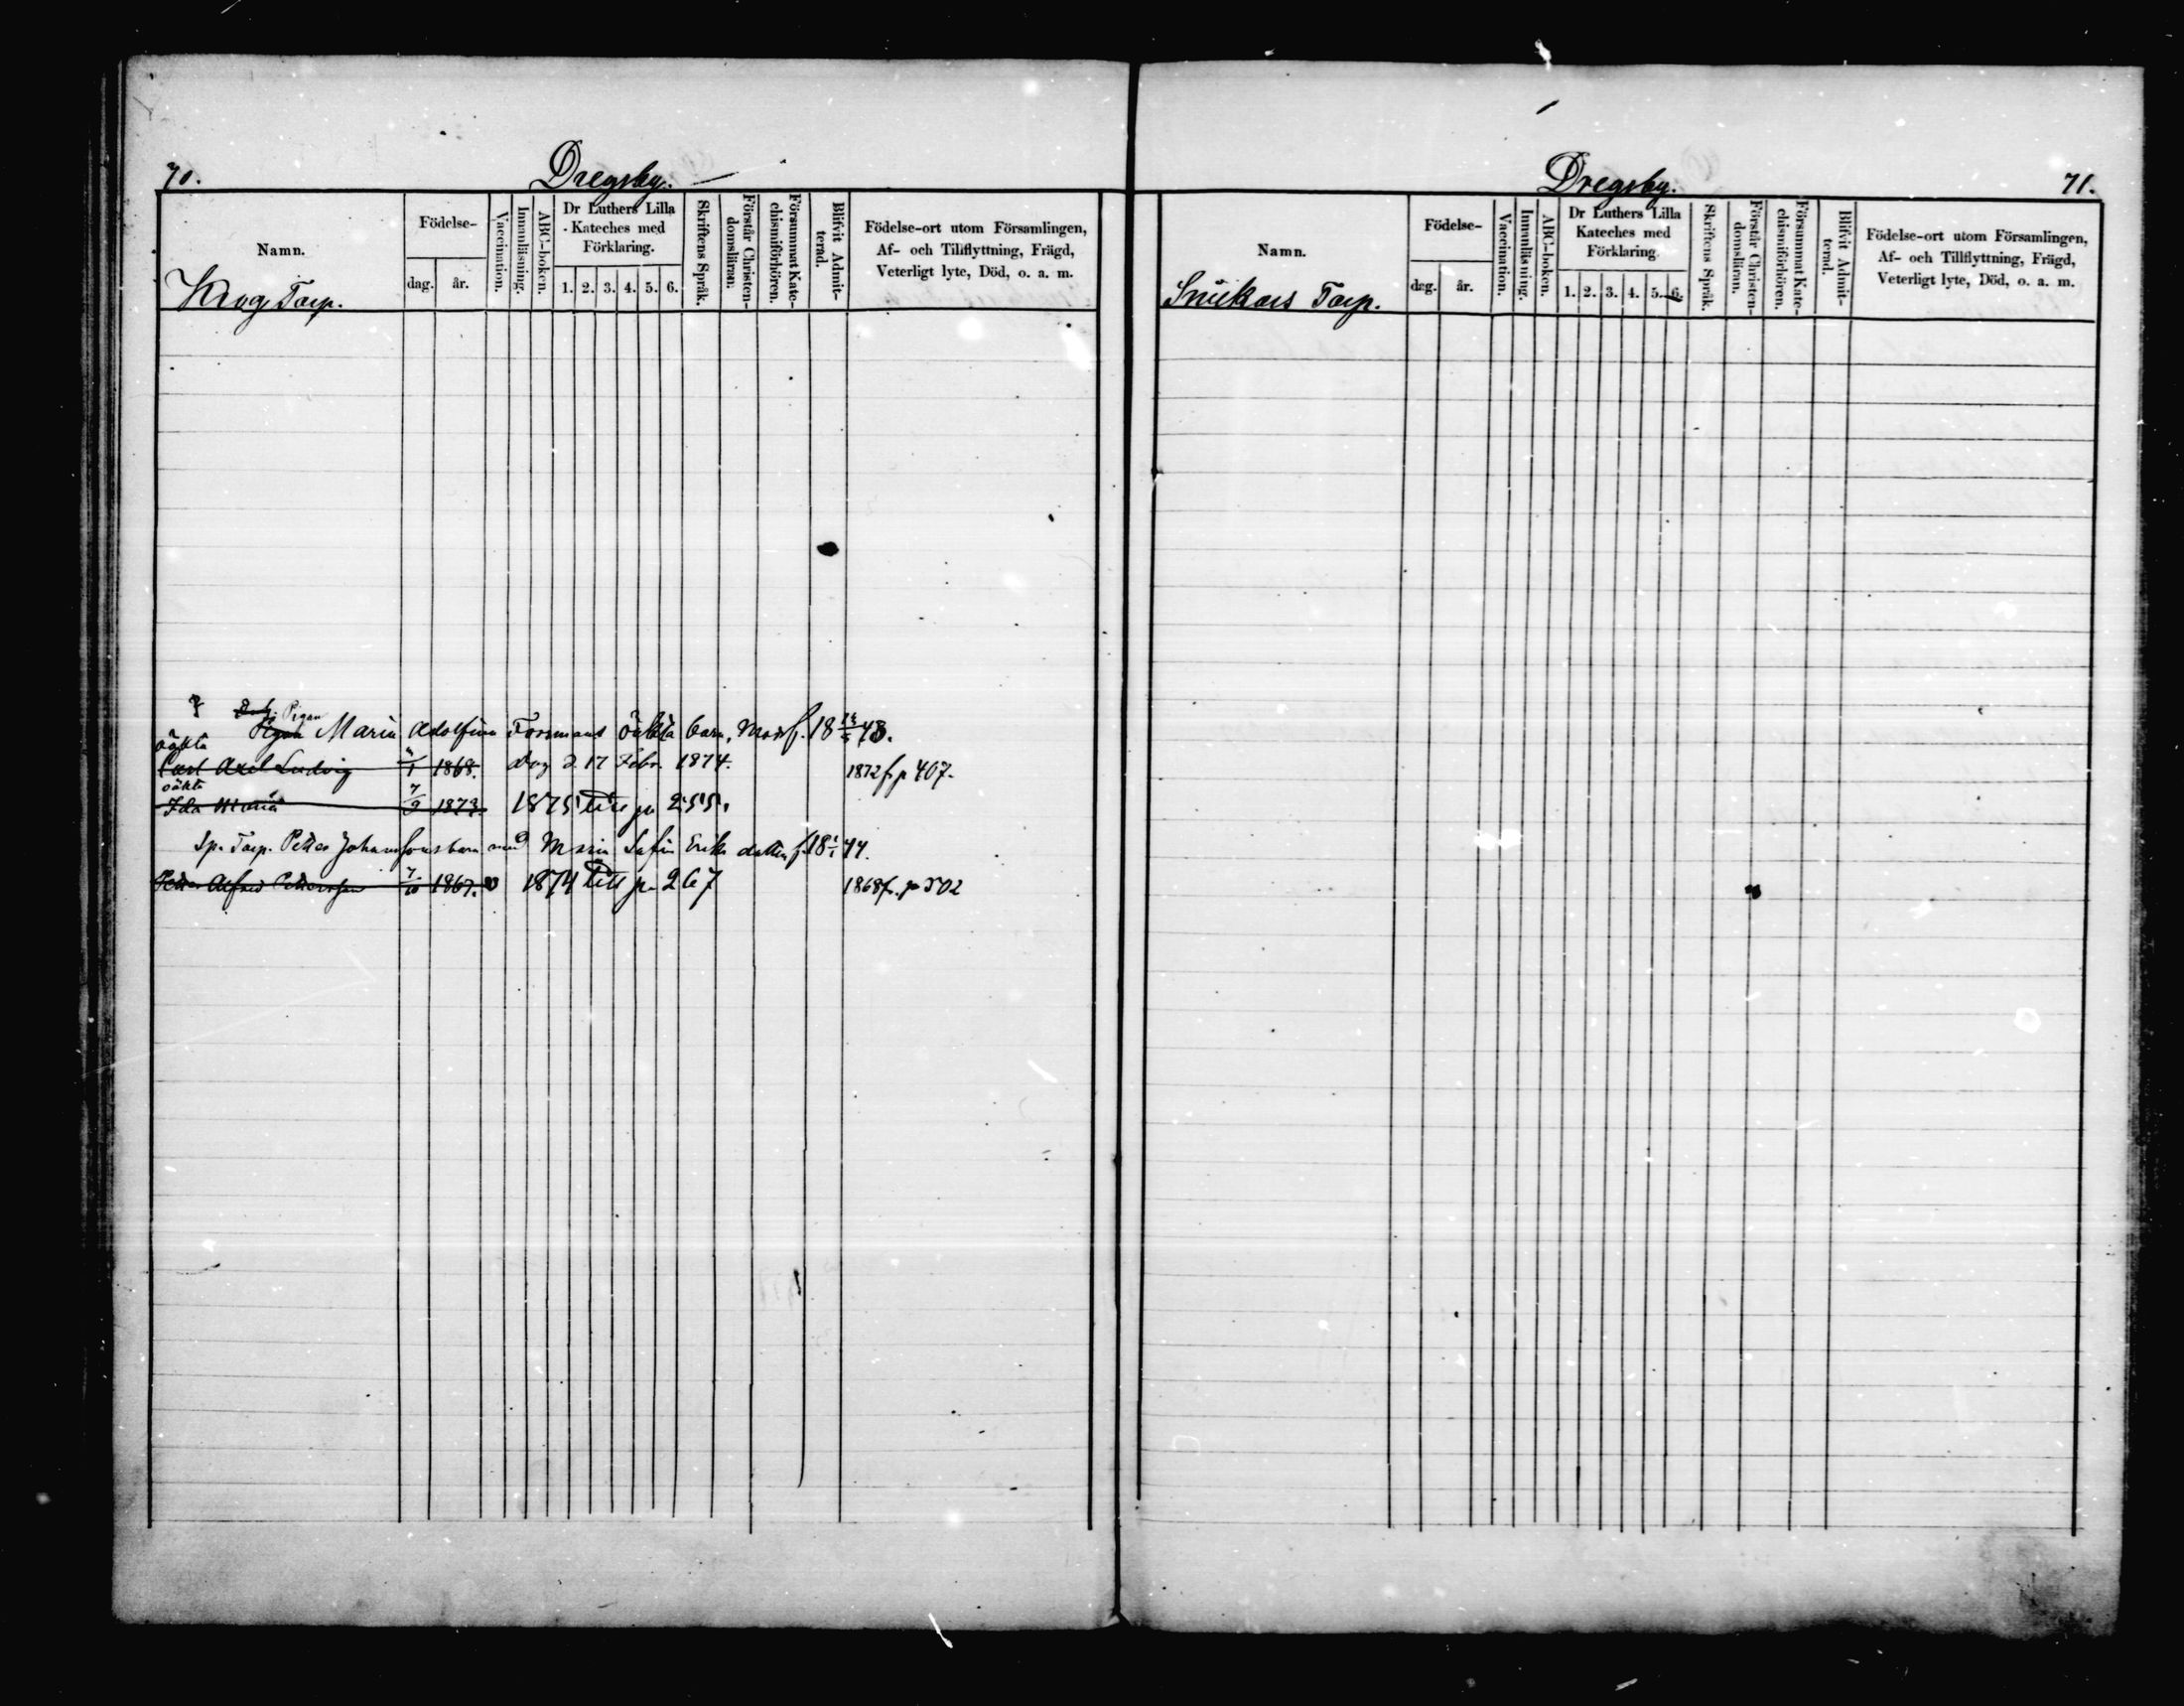 70.
Dregsby.
Namn.
Födelse-
dag. år.
Vaccination.
Innanläsning.
ABC-boken.
Dr Luthers Lilla
Kateches med
Förklaring.
1. 2. 3. 4. 5. 6.
Skriftens Språk.
Förstår Christen-
domsläran.
Försummat Kate-
chismiförhören.
Blifvit Admit-
terad.
Födelse-ort utom Församlingen,
Af- och Tillflyttning, Frägd,
Veterligt lyte, Död, o. a. m.
Krogs Torp.
Pigan
Pigan Maria Adolfina Forsmans oäkta barn, Mod. f. 18 43.
oäkta
Carl Axel Ludvig 1 1868. dog d. 17 Febr. 1874. 1872 fr p 407.
oäkta
Ida Maria 7/9 1873. 1875 till pa 255.
Sp. Torp. Petter Johanssons barn med Maria Sofia Eriks dotter f. 18 44.
Petter Alfred Pettersson 7/10 1867. v 1874 till p. 267 1868 fr. p 502
Dregsby.
71.
Namn.
Födelse-
dag. år.
Vaccination.
Innanläsning.
ABC-boken.
Dr Luthers Lilla
Kateches med
Förklaring.
1. 2. 3. 4. 5. 6.
Skriftens Språk.
Förstår Christen-
domsläran.
Försummat Kate-
chismiförhören.
Blifvit Admit-
terad.
Födelse-ort utom Församlingen,
Af- och Tillflyttning, Frägd,
Veterligt lyte, Död, o. a. m.
Snickars Torp.